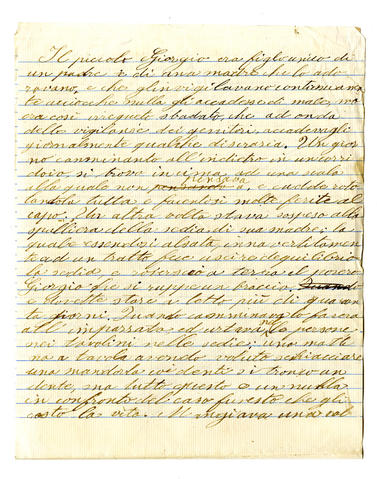 Il piccolo Giorgio era figlo unico di
un padre e di una madre che lo ado
ravano, e che gli vigilavano continuamen
te acciocche nulla gli accadesse di male, ma
era così irrequeto sbadato, che ad onda
della vigilanza dei genitori, accadevagli
giornalmente qualche disgrazia. Un gior
no camminando all'indietro in un corri
doio, si trovò in cima ad una scala
alla quale non pensava, e cadde roto
landola tutta e facentosi molte ferite al
capo. Un altra volta stava sospeso alla
spalliera della sedia di sua madre; la
quale essendosi alzata inavvertitamente
ad un tratto fece uscire dequilibrio
la sedia e rovesciò a terra il povero
Giorgio che si ruppe un braccio,
e dovette stare a letto più di quaran
te giorni. Quando camminava lo faceva
all impazzata ed urtava le persone
nei tavolini nelle sedie; una matti
na a tavola avendo voluto schiacciare
una mandorla coi denti si troncò un
dente, ma tutto questo è un nulla
in confronto del caso funesto che gli
costo la vita. M ngiava una vol